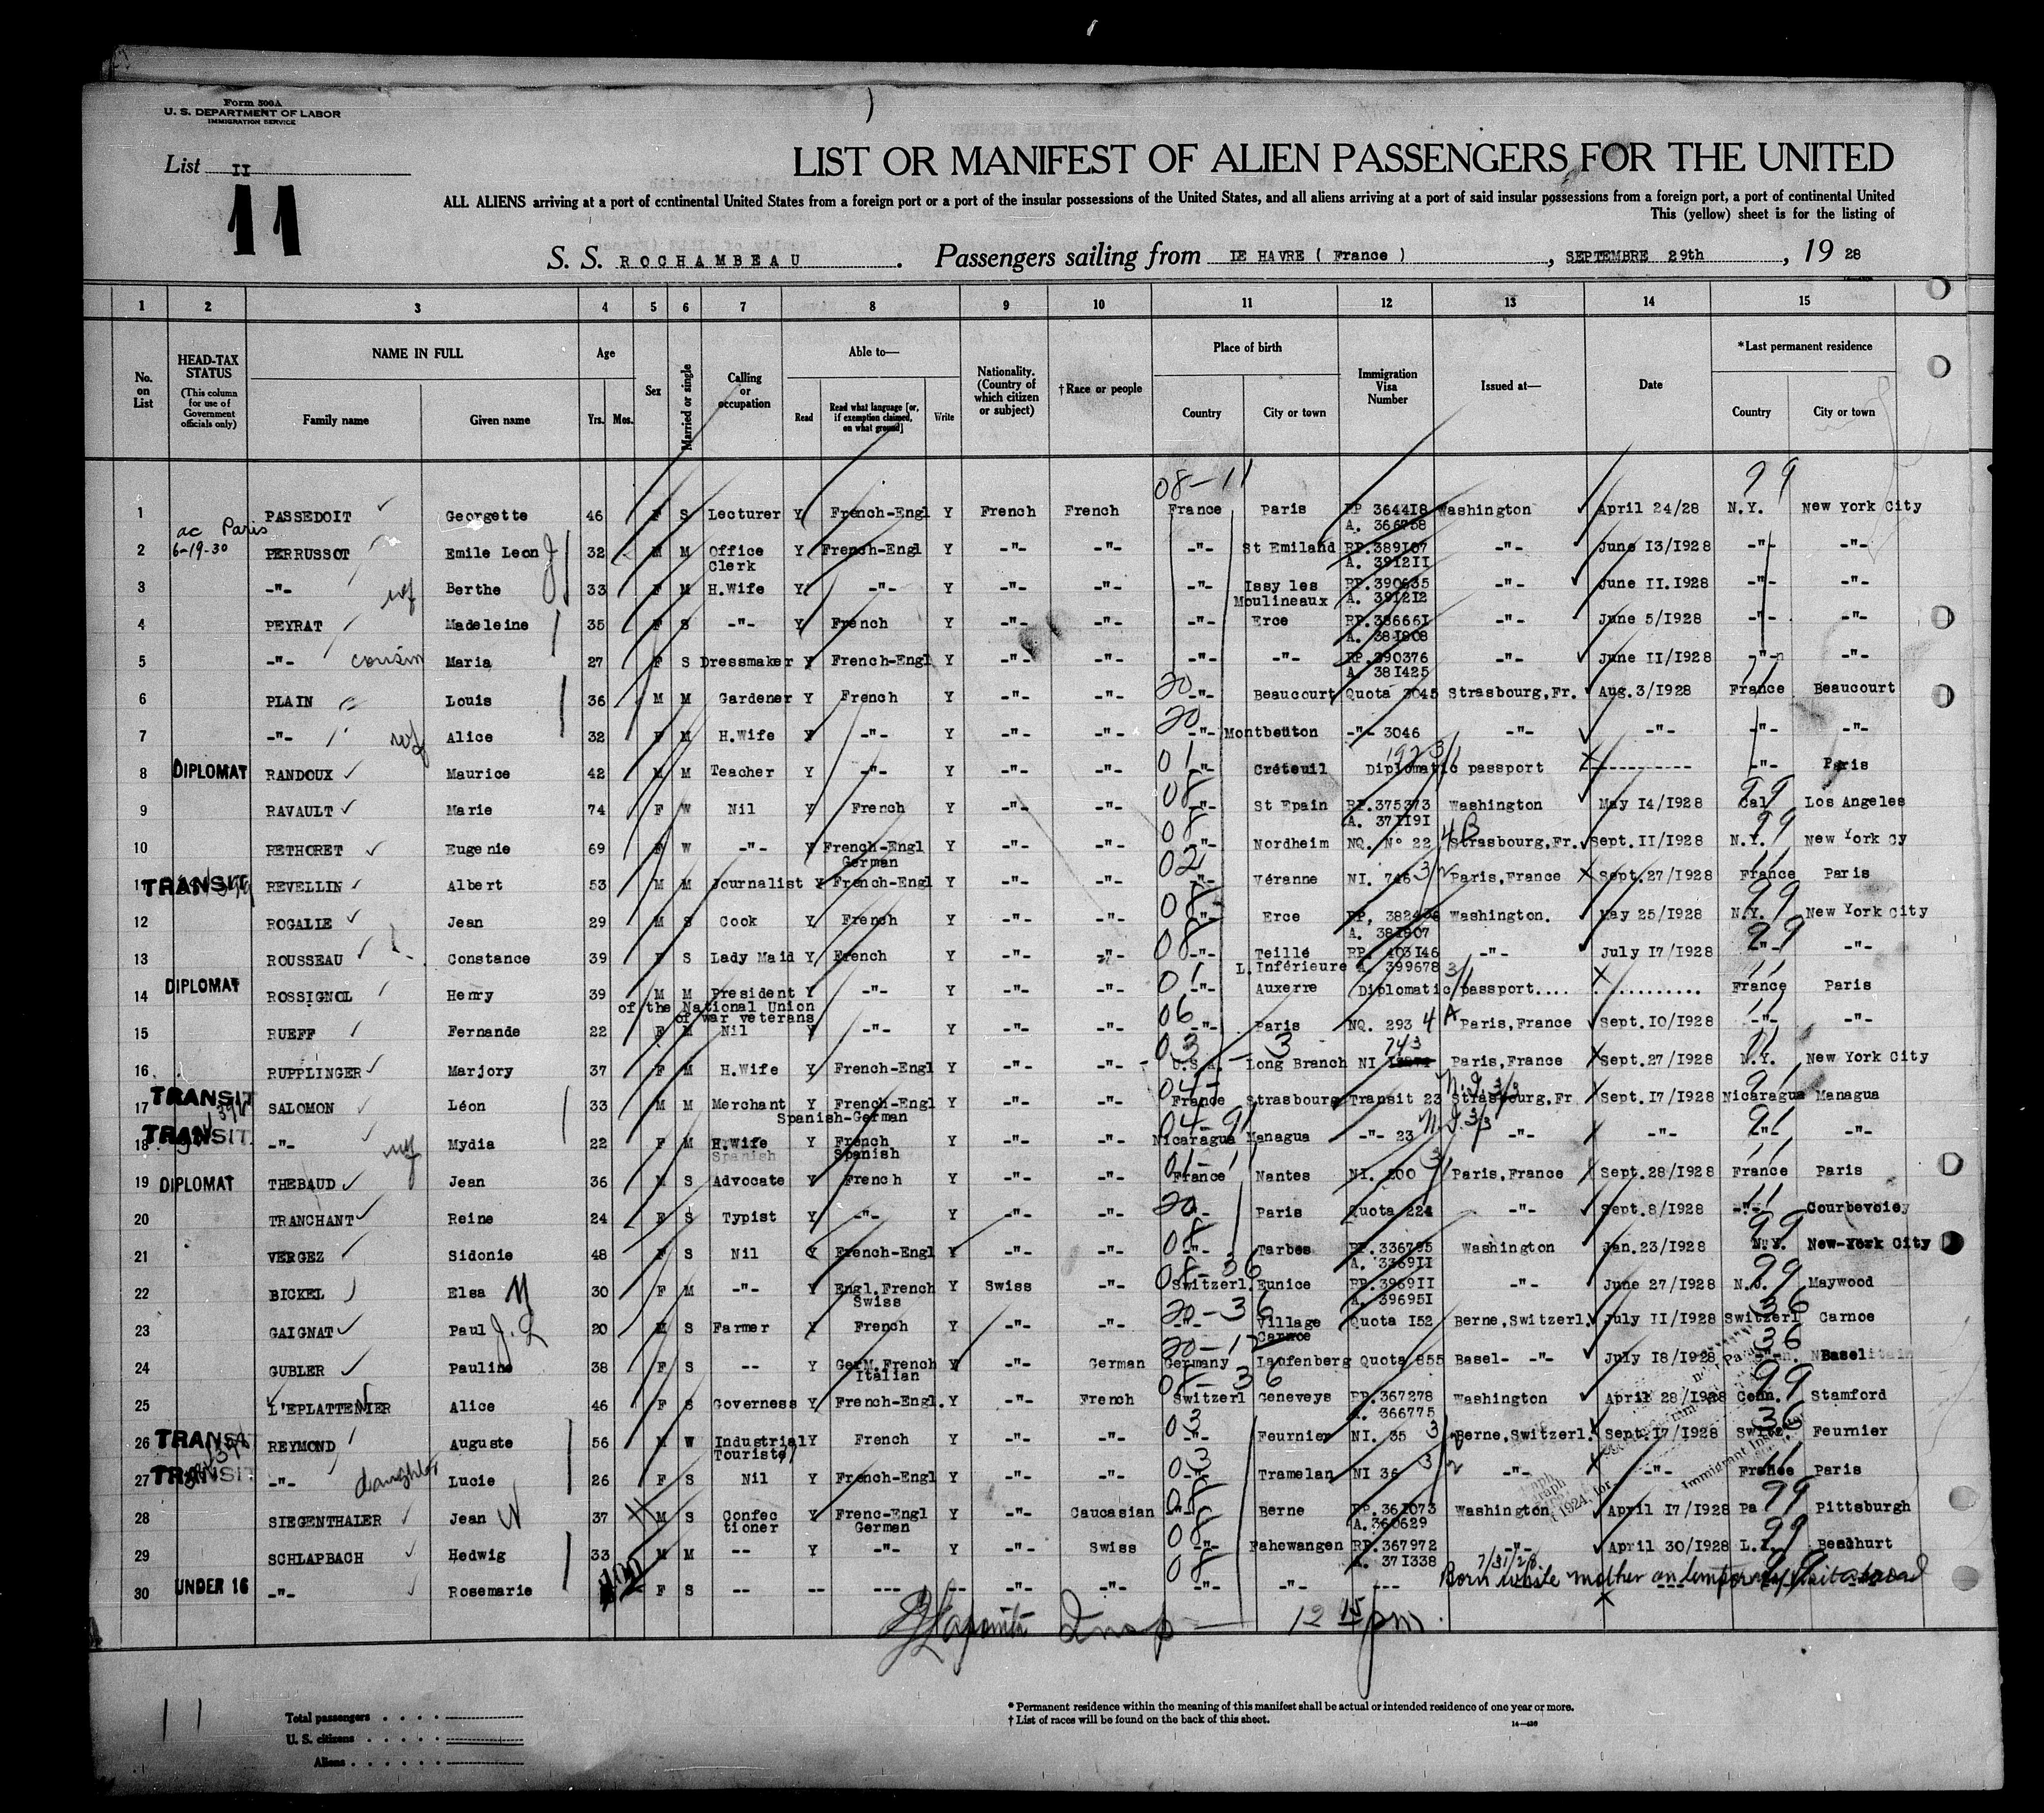 Form 500A
U. S. DEPARTMENT OF LABOR
IMMIGRATION SERVICE
List II
11
LIST OR MANIFEST OF ALIEN PASSENGERS FOR THE UNITED
ALL ALIENS arriving at a port of continental United States from a foreign port or a port of the insular possessions of the United States, and all aliens arriving at a port of said insular possessions from a foreign port, a port of continental United
This (yellow) sheet is for the listing of
S. S. ROCHAMBEAU . Passengers sailing from LE HAVRE ( France ) , SEPTEMBRE 29th , 19 28
1 2 3 4 5 6 7 8 9 10 11 12 13 14 15
No. on List
HEAD-TAX STATUS (This column for use of Government officials only)
NAME IN FULL
Family name
Given name
Age
Yrs. Mos.
Sex
Married or single
Calling or occupation
Able to—
Read
Read what language [or, if exemption claimed, on what ground]
Write
Nationality. (Country of which citizen or subject)
†Race or people
Place of birth
Country
City or town
Immigration Visa Number
Issued at—
Date
*Last permanent residence
Country
City or town
08-11 99
1 PASSEDOIT Georgette 46 F S Lecturer Y French-Engl Y French French France Paris RP 364418 Washington April 24/28 N.Y. New York City
A. 366758
ac Paris
6-19-30
2 PERRUSSOT Emile Leon 32 M M Office Y French-Engl Y -"- -"- -"- St Emiland RP.389107 -"- June 13/1928 -"- -"-
Clerk A. 391211
3 -"- wf Berthe 33 F M H.Wife Y -"- Y -"- -"- -"- Issy les RP. 390635 -"- June 11.1928 -"- -"-
Moulineaux A. 391212
4 PEYRAT Madeleine 35 F S -"- Y French Y -"- -"- -"- Erce RP.386661 -"- June 5/1928 -"- -"-
A. 381808
5 -"- cousin Maria 27 F S Dressmaker Y French-Engl Y -"- -"- -"- -"- RP.390376 -"- June 11/1928 -"- -"-
A. 381425
6 PLAIN Louis 36 M M Gardener Y French Y -"- -"- 20 -"- Beaucourt Quota 3045 Strasbourg,Fr. Aug.3/1928 France Beaucourt
7 -"- wf Alice 32 F M H.Wife Y -"- Y -"- -"- 20 -"- Montbeuton -"- 3046 -"- -"- -"- -"-
8 DIPLOMAT RANDOUX Maurice 42 M M Teacher Y -"- Y -"- -"- 01 -"- Créteuil Diplomatic passport ----------- -"- Paris
9 RAVAULT Marie 74 F W Nil Y French Y -"- -"- 08 -"- St Epain RP.375373 Washington May 14/1928 Cal 99 Los Angeles
A. 371191
10 RETHORET Eugenie 69 F W -"- Y French-Engl Y -"- -"- 08 -"- Nordheim NQ. No 22 4B Strasbourg,Fr. Sept.11/1928 N.Y. 99 New York Cy
German
11 TRANSIT REVELLIN Albert 53 M M Journalist Y French-Engl Y -"- -"- 02 -"- Véranne NI. 746 3/2 Paris,France Sept.27/1928 France Paris
12 ROGALIE Jean 29 M S Cook Y French Y -"- -"- 08 -"- Erce RP. Washington. May 25/1928 N.Y. 99 New York City
A. 381807
13 ROUSSEAU Constance 39 F S Lady Maid Y French Y -"- -"- 08 -"- Teillé RP. 403146 -"- July 17/1928 -"- 99 -"-
L.Inférieure A. 399678
14 DIPLOMAT ROSSIGNOL Henry 39 M M President Y -"- Y -"- -"- 01 -"- Auxerre Diplomatic passport.... ............ France Paris
of the National Union
of war veterans
15 RUEFF Fernande 22 F M Nil Y -"- Y -"- -"- 06 -"- Paris NQ. 293 4A Paris,France Sept.10/1928 -"- -"-
16 RUPPLINGER Marjory 37 F M H.Wife Y French-Engl Y -"- -"- 03 U.S.A. 3 Long Branch NI 743 Paris,France Sept.27/1928 N.Y. New York City
17 TRANSIT SALOMON Léon 33 M M Merchant Y French-Engl Y -"- -"- 04- France Strasbourg Transit 23 N.I.3/3 Strasbourg,Fr Sept.17/1928 Nicaragua 91 Managua
Spanish-German
18 TRANSIT -"- wf Mydia 22 F M H.Wife Y French Y -"- -"- 04-91 Nicaragua Managua -"- 23 N.I.3/3 -"- -"- -"- 91 -"-
Spanish Spanish
19 DIPLOMAT THEBAUD Jean 36 M S Advocate Y French Y -"- -"- 01-11 France Nantes NI. 200 Paris,France Sept.28/1928 France Paris
20 TRANCHANT Reine 24 F S Typist Y -"- Y -"- -"- 20 -"- Paris Quota 224 -"- Sept.8/1928 -"- Courbevoie
21 VERGEZ Sidonie 48 F S Nil Y French-Engl Y -"- -"- 08 -"- Tarbes RP.336795 Washington Jan.23/1928 N.Y. 99 New-York City
A. 336911
22 BICKEL Elsa 30 F M -"- Y Engl.French Y Swiss -"- 08-36 Switzerl. Eunice RP.396911 -"- June 27/1928 N.J. 99 Maywood
Swiss A. 396951
23 GAIGNAT Paul 20 M S Farmer Y French Y -"- -"- 20-36 -"- Village Quota 152 Berne,Switzerl. July 11/1928 Switzerl 36 Carnoe
Carnoe
24 GUBLER Pauline 38 F S -- Y GerM.French Y -"- German 20-12 Germany Laufenberg Quota 855 Basel- -"- July 18/1928 36 Basel
Italian
25 L'EPLATTENIER Alice 46 F S Governess Y French-Engl. Y -"- French 08-36 Switzerl Geneveys RP.367278 Washington April 28/1928 Conn. 99 Stamford
A. 366775
26 TRANSIT REYMOND Auguste 56 M W Industriel Y French Y -"- -"- 03 -"- Feurnier NI. 35 3/2 Berne,Switzerl. Sept.17/1928 Switz 36 Feurnier
Touriste
27 TRANSIT -"- daughter Lucie 26 F S Nil Y French-Engl Y -"- -"- 03 -"- Tramelan NI 36 3/2 -"- -"- France Paris
28 SIEGENTHALER Jean 37 M S Confec Y Frenc-Engl Y -"- Caucasian 08 -"- Berne RP.361073 Washington April 17/1928 Pa 99 Pittsburgh
tioner German A.360629
29 SCHLAPBACH Hedwig 33 M M -- Y -"- Y -"- Swiss 08 -"- Fahewangen RP.367972 -"- April 30/1928 L.I. 99
A. 371338 7/31/28
30 UNDER 16 -"- Rosemarie F S -- -- --- -- -"- -"- 08 -"- -"- --- Born while mother on temporary visit abroad
Insp — 12 15 pm.
11
Total passengers
U. S. citizens
Aliens
* Permanent residence within the meaning of this manifest shall be actual or intended residence of one year or more.
† List of races will be found on the back of this sheet.